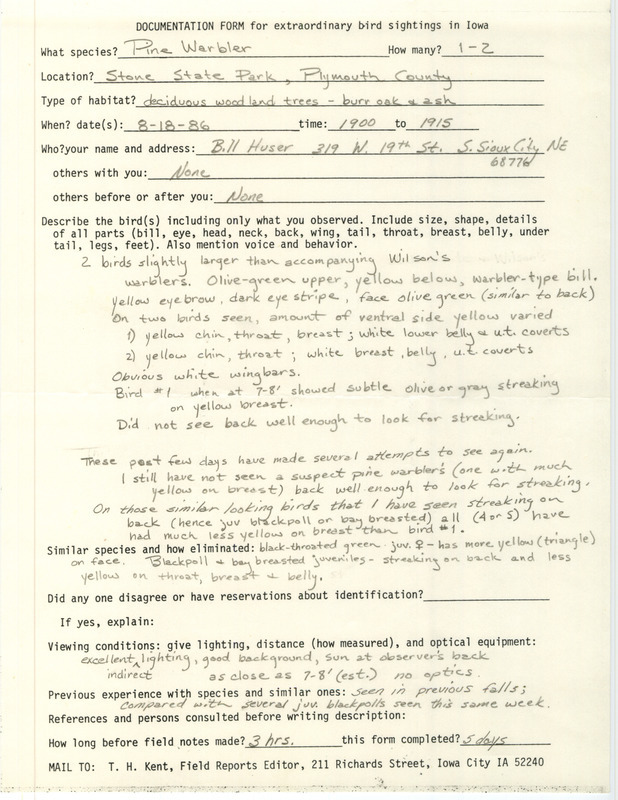 DOCUMENTATION FORM for extraordinary bird sightings in Iowa
What species? Pine Warbler How many? 1-2
Location? Stone State Park, Plymouth County
Type of habitat? deciduous woodland trees - burr oak & ash
When? date(s): 8-18-86 time: 1900 to 1915
Who? your name and address: Bill Huser 319 W. 19th St. S. Sioux City NE
68776
others with you: None
others before or after you: None
Describe the bird(s) including only what you observed. Include size, shape, details
of all parts (bill, eye, head, neck, back, wing, tail, throat, breast, belly, under
tail, legs, feet). Also mention voice and behavior.
2 birds slightly larger than accompanying Wilson's
warblers. Olive-green upper, yellow below, warbler-type bill.
Yellow eyebrow, dark eye stripe, face olive green (similar to back)
On two birds seen, amount of ventral side yellow varied
1) yellow chin, throat, breast; white lower belly & u.t. coverts
2) yellow chin, throat; white breast, belly, u.t. coverts
Obvious white wingbars.
Bird #1 when at 7-8' showed subtle olive or gray streaking
on yellow breast.
Did not see back well enough to look for streaking.
These past few days have made several attempts to see again.
I still have not seen a suspect pine warbler's (one with much
yellow on breast) back well enough to look for streaking.
On those similar looking birds that I have seen streaking on
back (hence juv blackpoll or bay breasted) all (4 or 5) have
had much less yellow on breast than bird #1.
Similar species and how eliminated: black-throated green juv. ♀ - has more yellow (triangle)
on face. Blackpoll & bay breasted juveniles - streaking on back and less
yellow on throat, breast & belly.
Did any one disagree or have reservations about identification?
If yes, explain:
Viewing conditions: give lighting, distance (how measured), and optical equipment:
excellent ^ lighting, good background, sun at observer's back
indirect as close as 7-8' (est.) no optics.
Previous experience with species and similar ones: seen in previous falls;
compared with several juv. blackpolls seen this same week.
References and persons consulted before writing description:
How long before field notes made? 3 hrs. this form completed? 5 days
MAIL TO: T. H. Kent, Field Reports Editor, 211 Richards Street, Iowa City IA 52240